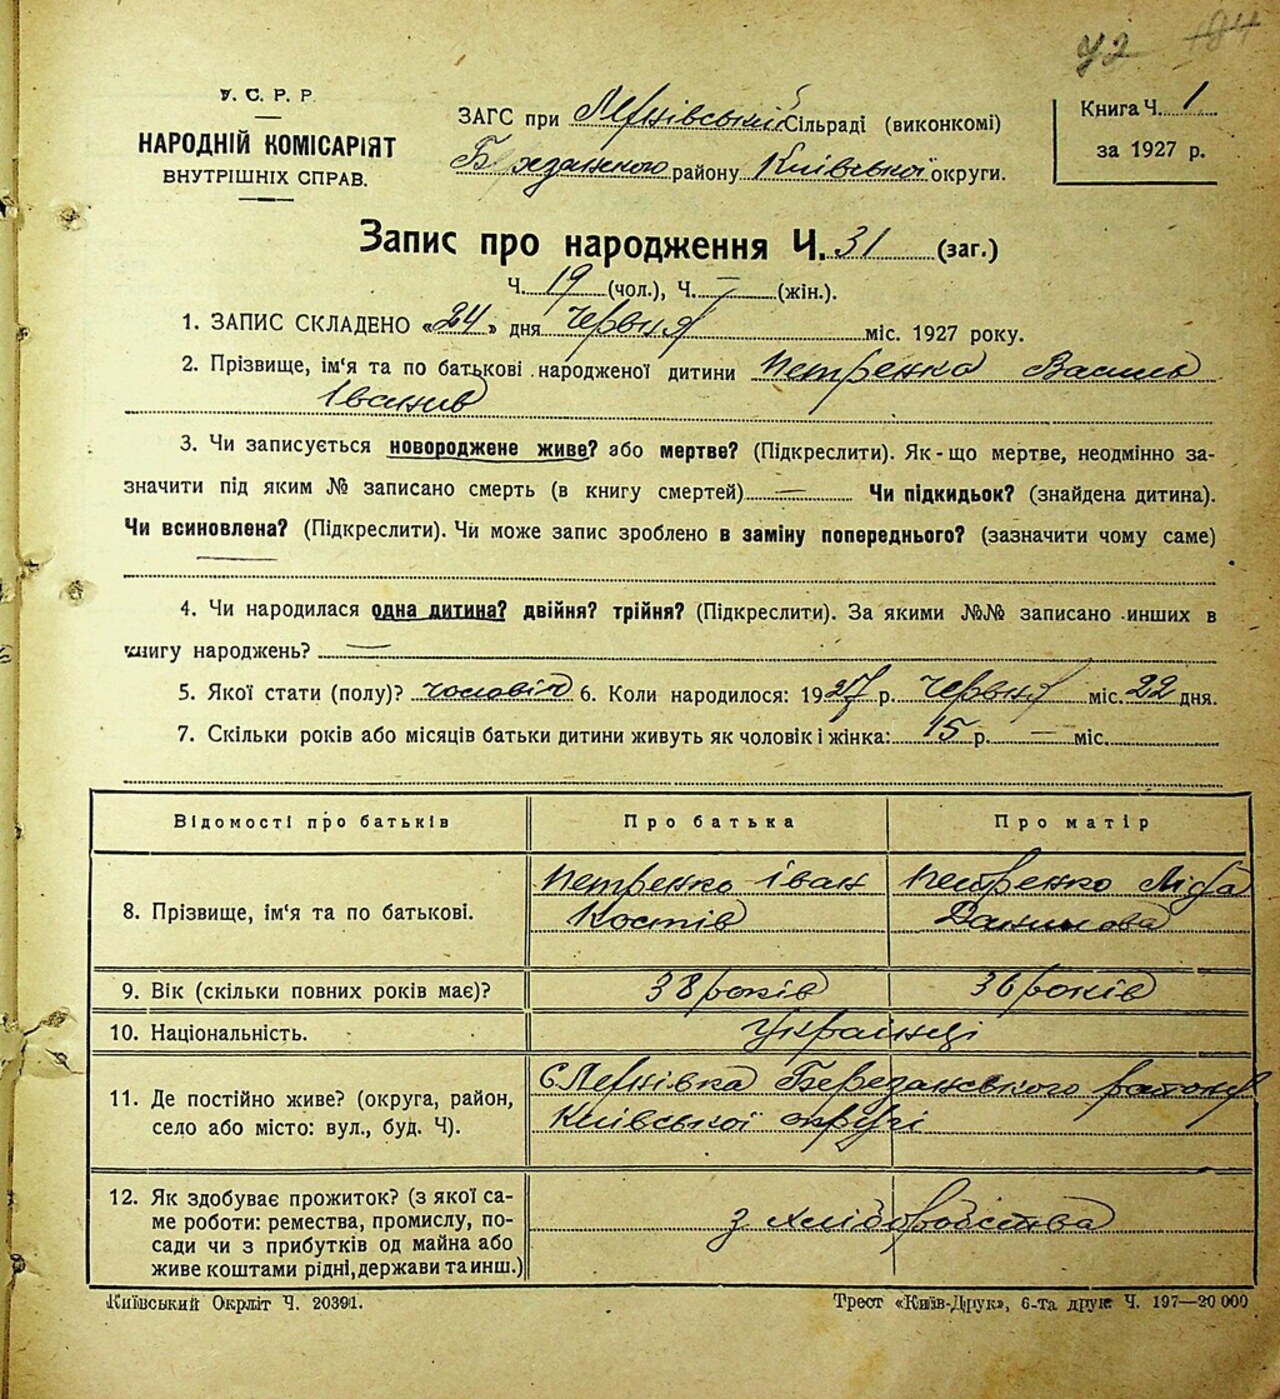 У2 184
У. С. Р. Р.
НАРОДНІЙ КОМІСАРІЯТ
ВНУТРІШНІХ СПРАВ.
ЗАГС при Лехнівській Сільраді (виконкомі)
Березанського району Київської округи.
Книга Ч. 1
за 1927 р.
Запис про народження Ч. 31 (заг.)
Ч. 19 (чол.), Ч. — (жін.).
1. ЗАПИС СКЛАДЕНО «24» дня червня міс. 1927 року.
2. Прізвище, ім'я та по батькові народженої дитини Петренко Василь
Іванів
3. Чи записується новороджене живе? або мертве? (Підкреслити). Як-що мертве, неодмінно за-
значити під яким № записано смерть (в книгу смертей) — Чи підкидьок? (знайдена дитина).
Чи всиновлена? (Підкреслити). Чи може запис зроблено в заміну попереднього? (зазначити чому саме)
4. Чи народилася одна дитина? двійня? трійня? (Підкреслити). За якими №№ записано инших в
книгу народжень? —
5. Якої стати (полу)? чоловіч 6. Коли народилося: 1927 р. червня міс. 22 дня.
7. Скільки років або місяців батьки дитини живуть як чоловік і жінка: 15 р. — міс.
Відомості про батьків Про батька Про матір
8. Прізвище, ім'я та по батькові.
Петренко Іван
Костів
Петренко
Данилова
9. Вік (скільки повних років має)? 38 років 36 років
10. Національність. Українці
11. Де постійно живе? (округа, район,
село або місто: вул., буд. Ч).
С Лехнівка Березанського району
Київської округі
12. Як здобуває прожиток? (з якої са-
ме роботи: ремества, промислу, по-
сади чи з прибутків од майна або
живе коштами рідні, держави та инш.)
з хліборобства
Київський Окрліт Ч. 20391.
Трест «Київ-Друк», 6-та друк Ч. 197—20 000